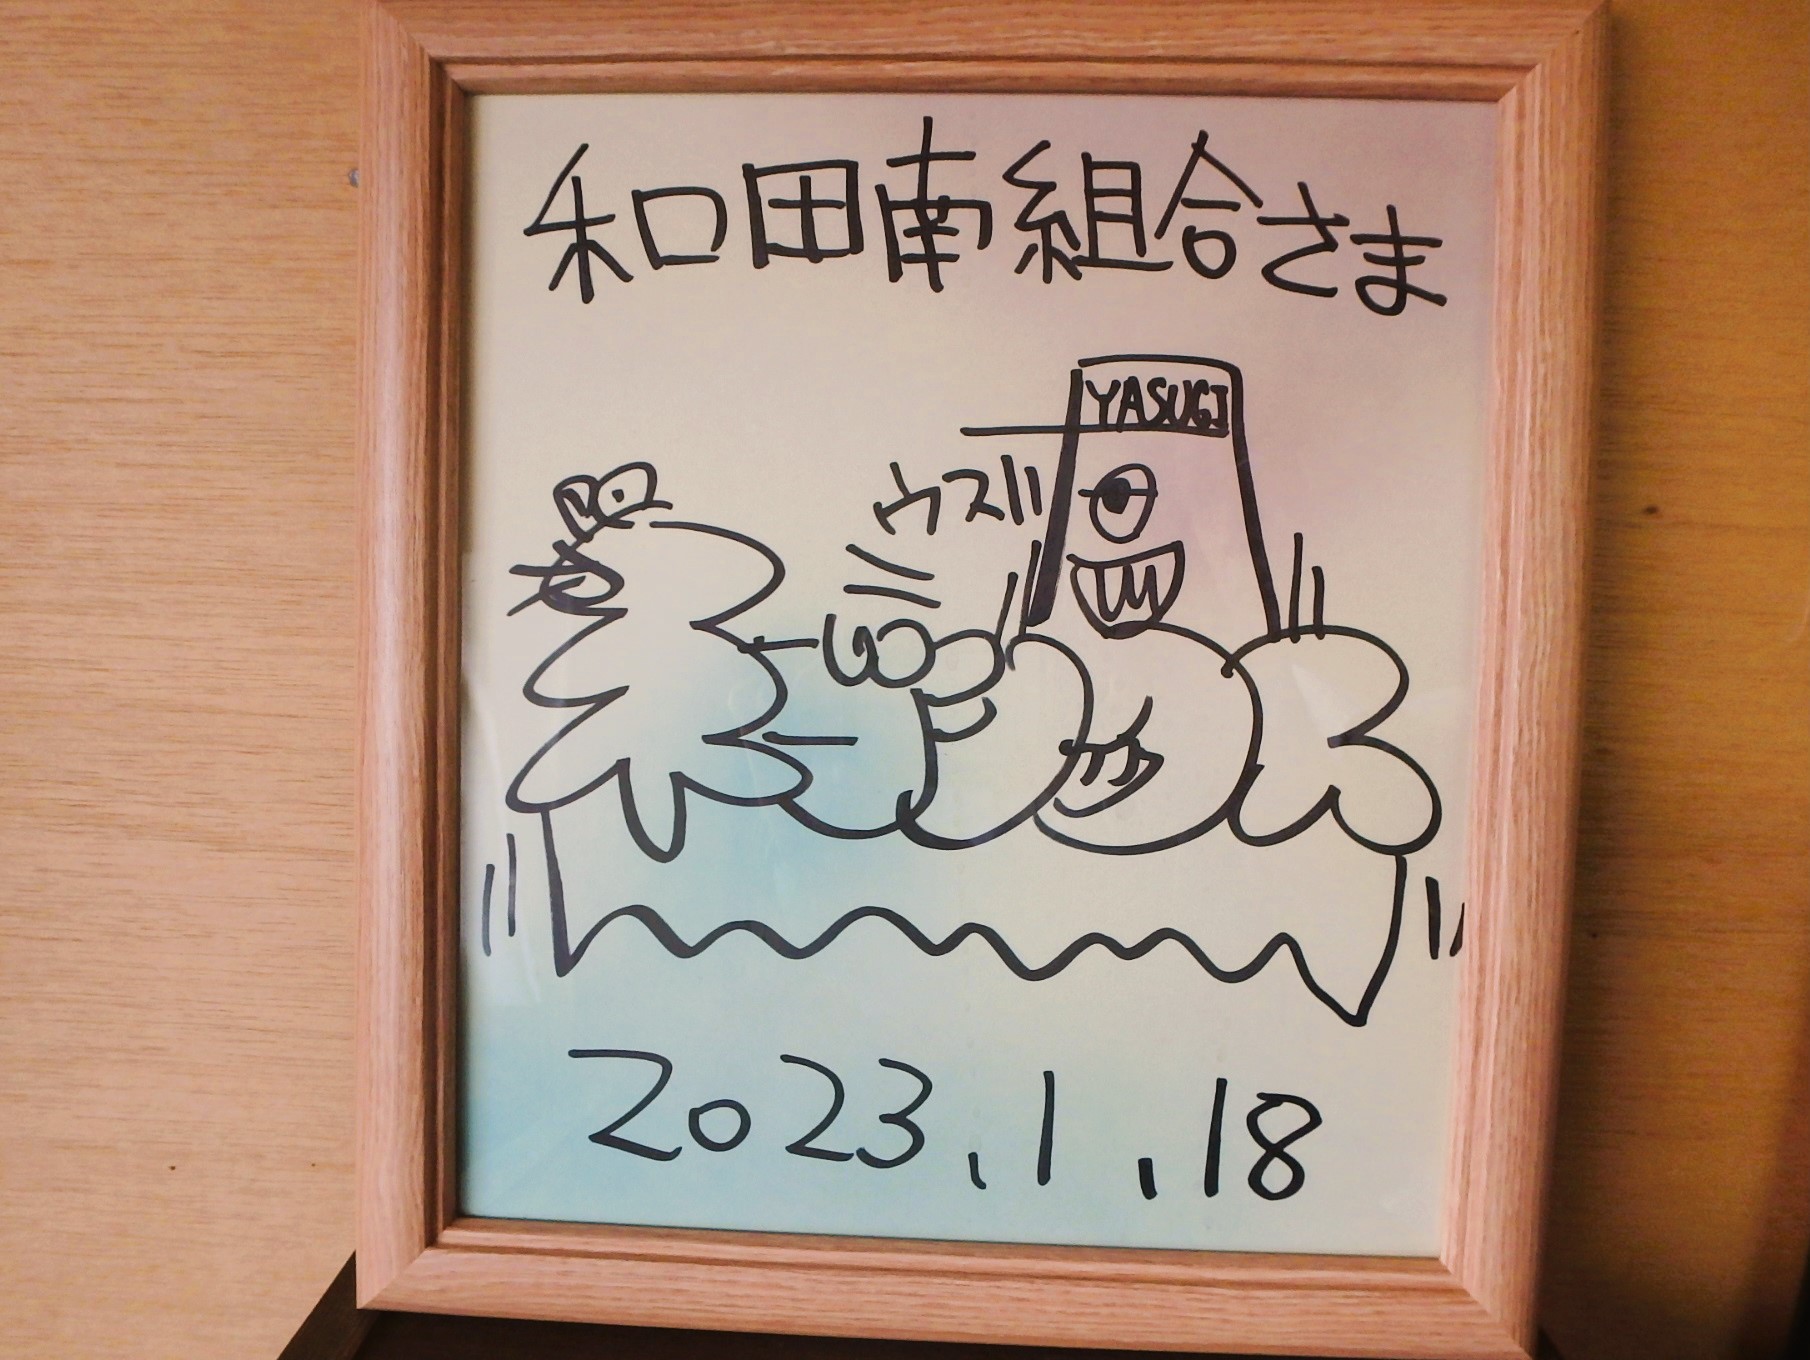 和田南組合さま
YASUGI
ウズ
2023.1.18